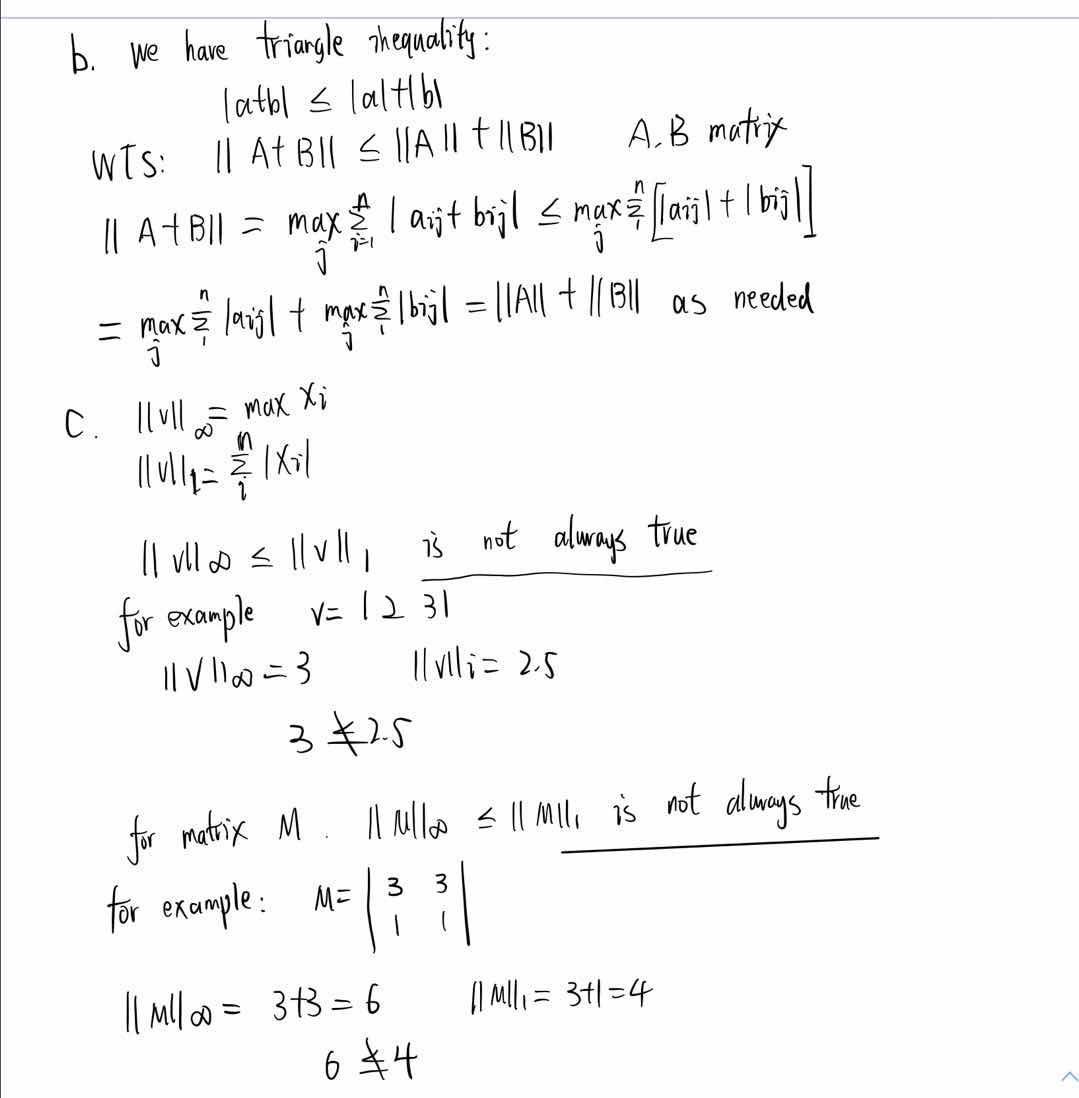 b. We have triangle inequality:
|a+b| ≤ |a|+|b|
WTS: || A+B|| ≤ ||A|| + ||B|| A.B matrix
|| A+B|| = max_j Σ_{i=1}^n | aij + bij| ≤ max_j Σ_1^n [|aij| + |bij|]
= max_j Σ_1^n |aij| + max_j Σ_1^n |bij| = ||A|| + ||B|| as needed
C. ||v||_∞ = max Xi
||v||_1 = Σ_i^n |Xi|
|| v||_∞ ≤ ||v||_1 is not always true
for example v= | 2 3|
||V||_∞ = 3 ||v||i = 2.5
3 ≰ 2.5
for matrix M . || M||_∞ ≤ || M||_1 is not always true
for example: M= | 3 3
1 1 |
||M||_∞ = 3+3 = 6 ||M||_1 = 3+1=4
6 ≰ 4